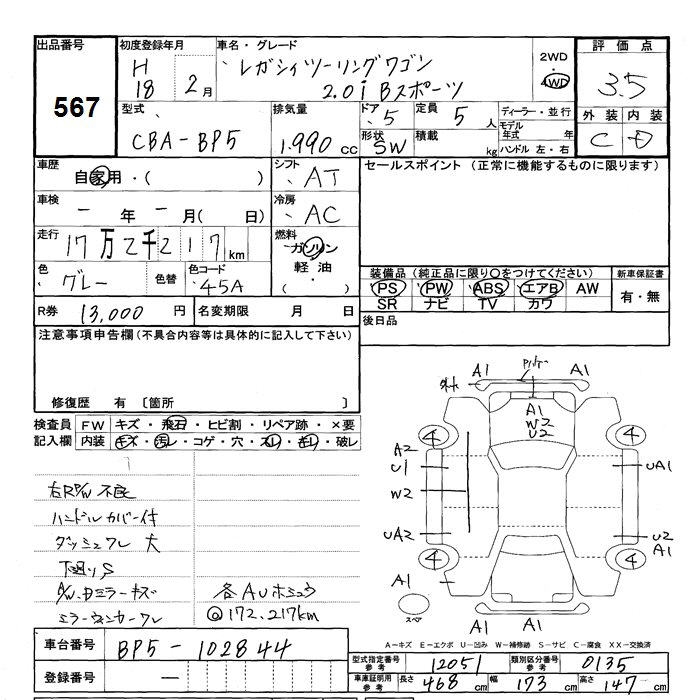 出品番号
567
初度登録年月
H
18 2月
車名・グレード
レガシィツーリングワゴン
2.0i Bスポーツ
2WD
4WD
評価点
3.5
外装 内装
C D
型式
CBA-BP5
排気量
1.990 cc
ドア 5
形状 SW
定員 5 人
積載 kg
ディーラー・並行
モデル年式 年
ハンドル 左・右
車歴
自家用・( )
シフト
AT
セールスポイント (正常に機能するものに限ります)
車検
ー 年 ー 月( 日)
冷房
AC
走行
17万2千217km
燃料
ガソリン
軽油
( )
色
グレー
色替
色コード
45A
装備品 (純正品に限り○をつけてください)
PS PW ABS エアB AW
SR ナビ TV カワ
新車保証書
有・無
R券 13,000 円
名変期限 月 日
後日品
注意事項申告欄 (不具合内容等は具体的に記入して下さい)
修復歴 有 〔箇所 〕
検査員記入欄
FW キズ・飛石・ヒビ割・リペア跡・×要
内装 キズ・汚レ・コゲ・穴・スレ・キレ・破レ
右RP/W不良
ハンドルカバー付
ダッシュワレ 大
下廻りS
ミラーウィンカーワレ
各AUホシュウ
@172.217km
A1 A1
A1
W2
U2
4 4
A2
U1
UA1
W2
UA2
U2
A1
4 4
A1
スペア
A1 A1
A-キズ E-エクボ U-凹み W-補修跡 S-サビ C-腐食 XX-交換済
車台番号
BP5-102844
登録番号
ー
型式指定番号
参考
12051
類別区分番号
参考
0135
車庫証明用
参考
長さ 468 cm 幅 173 cm 高さ 147 cm